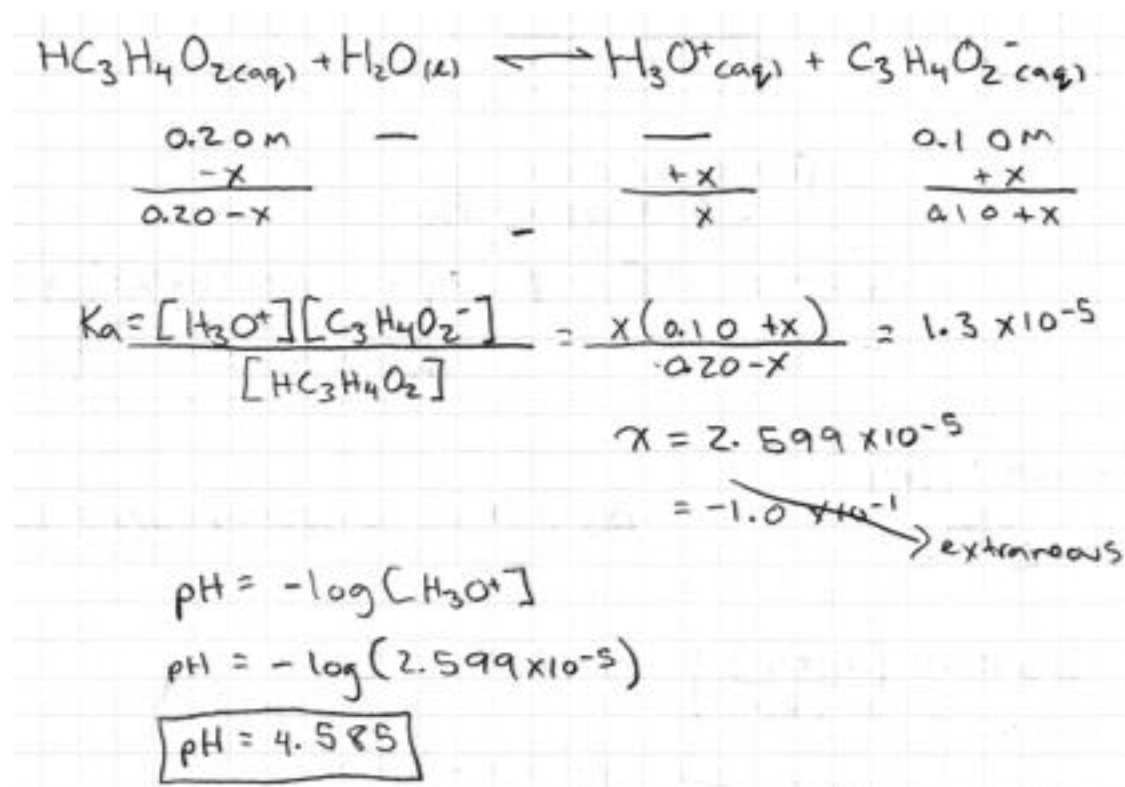 HC₃H₄O₂(aq) + H₂O(l) ⇌ H₃O⁺(aq) + C₃H₄O₂⁻(aq)
0.20 M — — 0.10 M
-x +x +x
0.20-x - x 0.10+x
Ka = [H₃O⁺][C₃H₄O₂⁻] / [HC₃H₄O₂] = x(0.10 +x) / 0.20-x = 1.3 x10⁻⁵
x = 2.599 x10⁻⁵
= -1.0 x10⁻¹
extraneous
pH = -log[H₃O⁺]
pH = -log(2.599x10⁻⁵)
pH = 4.585